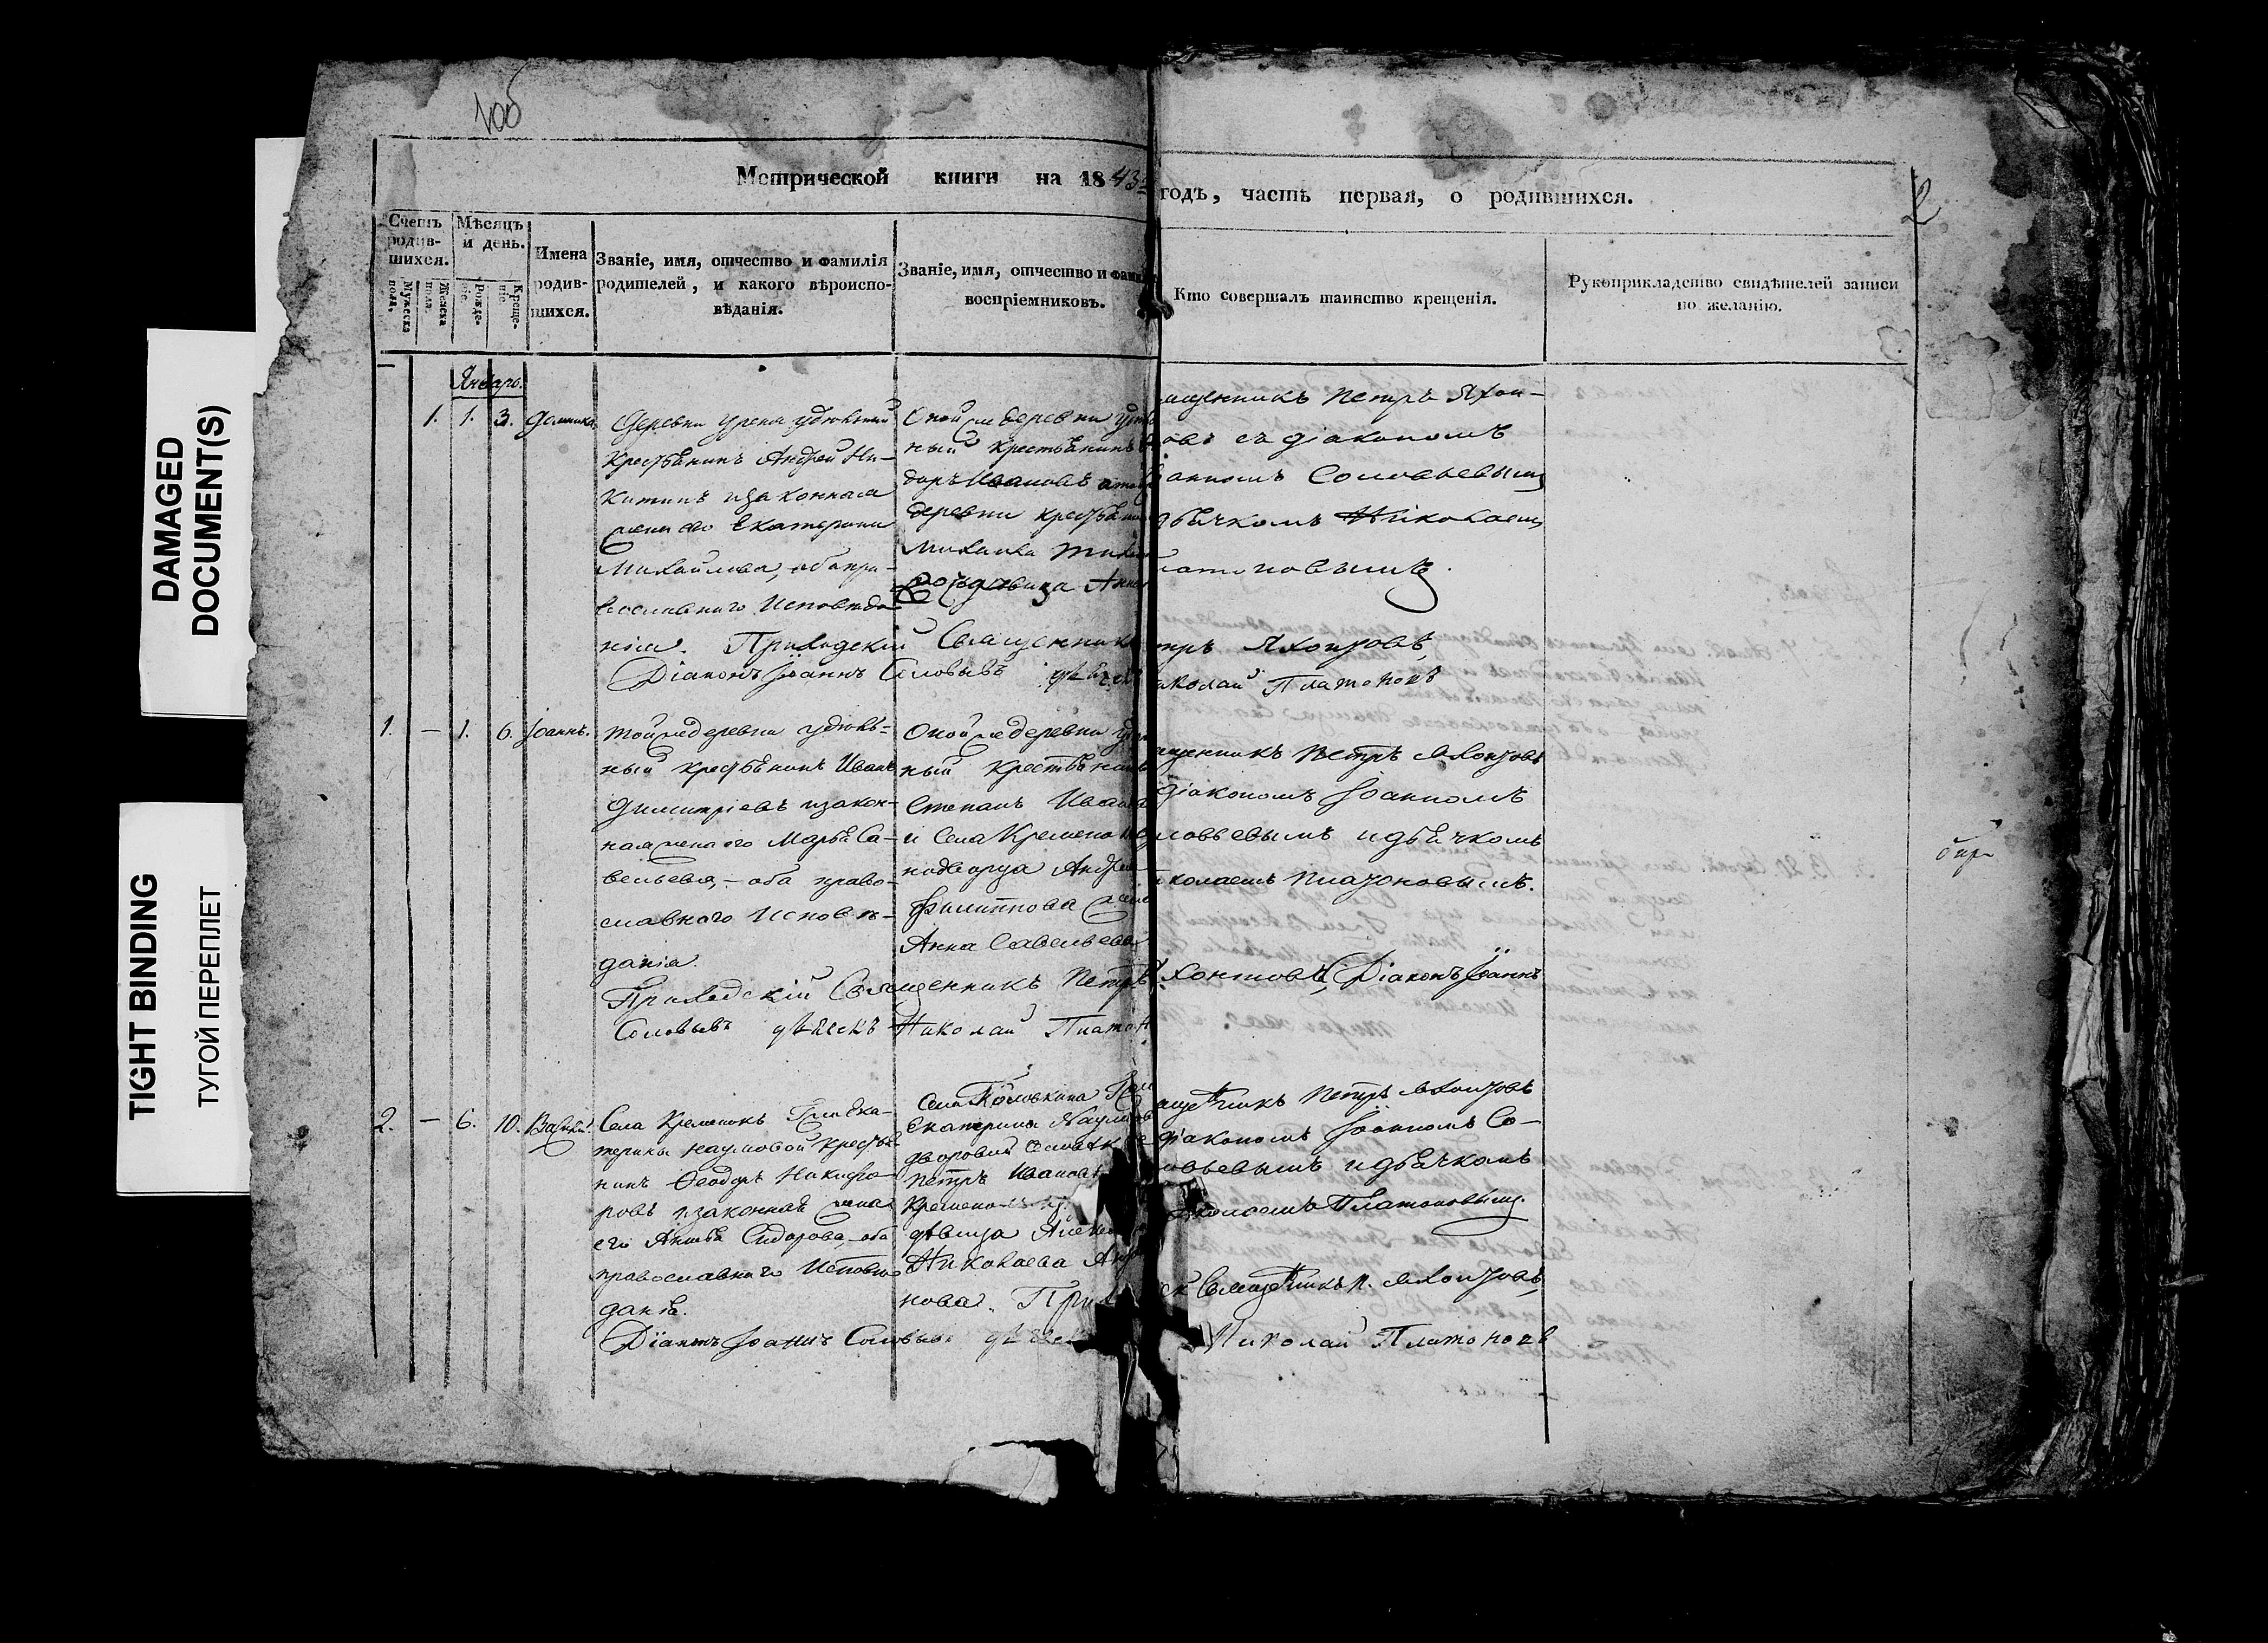 100
Метрической книги на 1843 годъ, часть первая, о родившихся.
2
Счетъ родив-
шихся.
Мужеска пола.
Женска пола.
Мѣсяцъ
и день.
Рожде-
ніе.
Креще-
ніе.
Имена
родив-
шихся.
Званіе, имя, отчество и фамилія
родителей, и какого вѣроиспо-
вѣданія.
Званіе, имя, отчество и фами
воспріемниковъ.
Кто совершалъ таинство крещенія.
Рукоприкладство свидѣтелей записи
по желанію.
Январь.
1. 1. 3. Домника
Деревни Урена удѣльный
крестьянинъ Андрей Ни-
китинъ и законная
жена его Екатерина
Михайлова, оба пра-
вославнаго исповѣда-
нія.
Оной же деревни
ный крестьянинъ
доръ Ивановъ
деревни
Михаила
Анна
ященникъ Петръ Яхон-
овъ съ діакономъ
оанномъ Соловьевымъ
ьячкомъ Николаемъ
латоновымъ.
Приходскій Священникъ
етръ Яхонтовъ,
Діаконъ Іоаннъ Соловьевъ дьячекъ
иколай Платоновъ
1. — 1. 6. Іоаннъ.
Той же деревни удѣль-
ный крестьянинъ Иванъ
Димитріевъ и закон-
ная жена его Марья Са-
вельева, — оба право-
славнаго исповѣ-
данія.
Оной же деревни
ный крестьянинъ
Степанъ Ивановъ
и Села Кременокъ
нодворца Андрея
Филиппова жена
Анна Савельева
ященникъ Петръ Яхонтовъ
діакономъ Іоанномъ
ловьевымъ и дьячкомъ
иколаемъ Платоновымъ.
Приходскій Священникъ Петръ Яхонтовъ, Діаконъ Іоаннъ
Соловьевъ дьячекъ Николай Платон
2. — 6. 10. Василій.
Села Кременокъ Г-жи Ека-
терины Наумовой крестья-
нинъ Ѳеодоръ Никифо-
ровъ и законная жена
его Анна Сидорова, — оба
православнаго исповѣ-
данія.
Села Головкина
Екатерины Наумов
дворовый
Петръ Ивановъ
Кременокъ
дѣвица
Николаева
нова. Прих
ященникъ Петръ Яхонтовъ
діакономъ Іоанномъ Со-
ловьевымъ и дьячкомъ
Николаемъ Платоновымъ.
Священникъ П. Яхонтовъ,
Діаконъ Іоаннъ Соловьевъ дьячекъ
Николай Платоновъ
DAMAGED
DOCUMENT(S)
TIGHT BINDING
ТУГОЙ ПЕРЕПЛЕТ